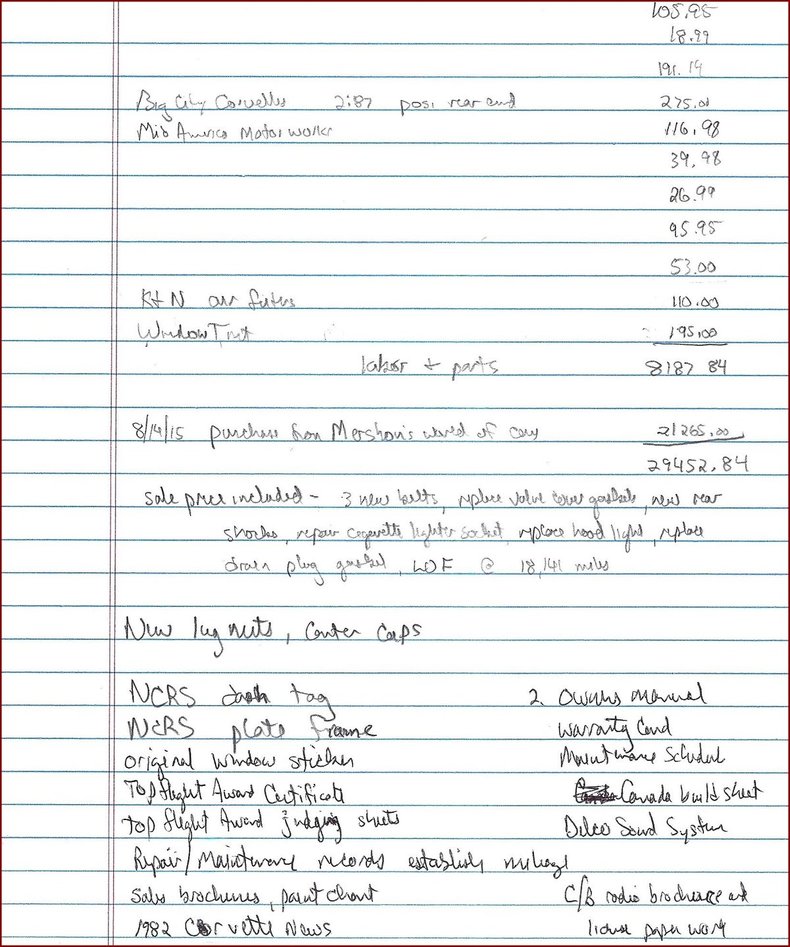 105.95
18.99
191.19
Big City Corvettes 2:87 posi rear end 275.00
Mid America Motor works 116.98
39.98
26.99
95.95
53.00
K+N air filters 110.00
Window Tint 195.00
labor + parts 8187 84
8/14/15 purchase from Mershon's world of cars 21265.00
29452.84
sale price included - 3 new belts, replace valve cover gaskets, new rear
shocks, repair cigarette lighter socket, replace hood light, replace
drain plug gasket, LOF @ 18,141 miles
New lug nuts, center caps
NCRS dash tag 2 owners manual
NCRS plate frame warranty card
original window sticker Maintenance Schedule
Top flight Award Certificate Canada build sheet
Top flight Award judging sheets Delco Sound System
Repair/Maintenance records establish mileage
Sales brochures, paint chart C/B radio brochure and
1982 Corvette News license paper work